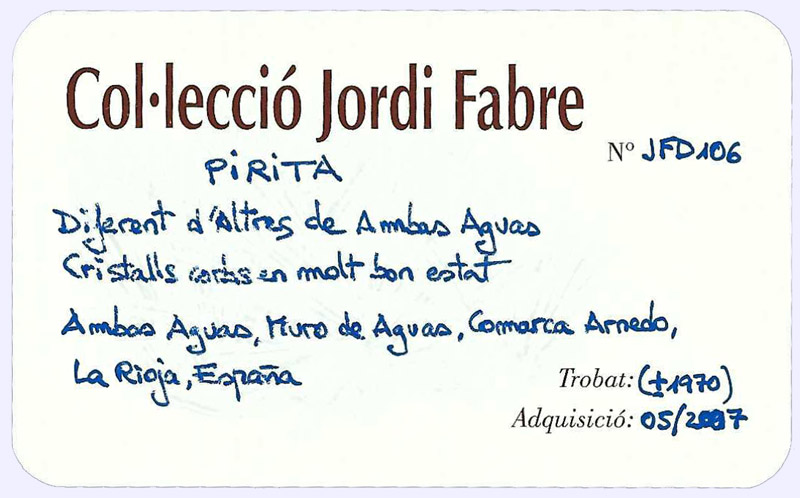 Col·lecció Jordi Fabre
Nº JFD106
PiRiTA
Diferent d'Altres de Ambas Aguas
Cristalls corbs en molt bon estat
Ambas Aguas, Muro de Aguas, Comarca Arnedo,
La Rioja, España
Trobat: (±1970)
Adquisició: 05/2007